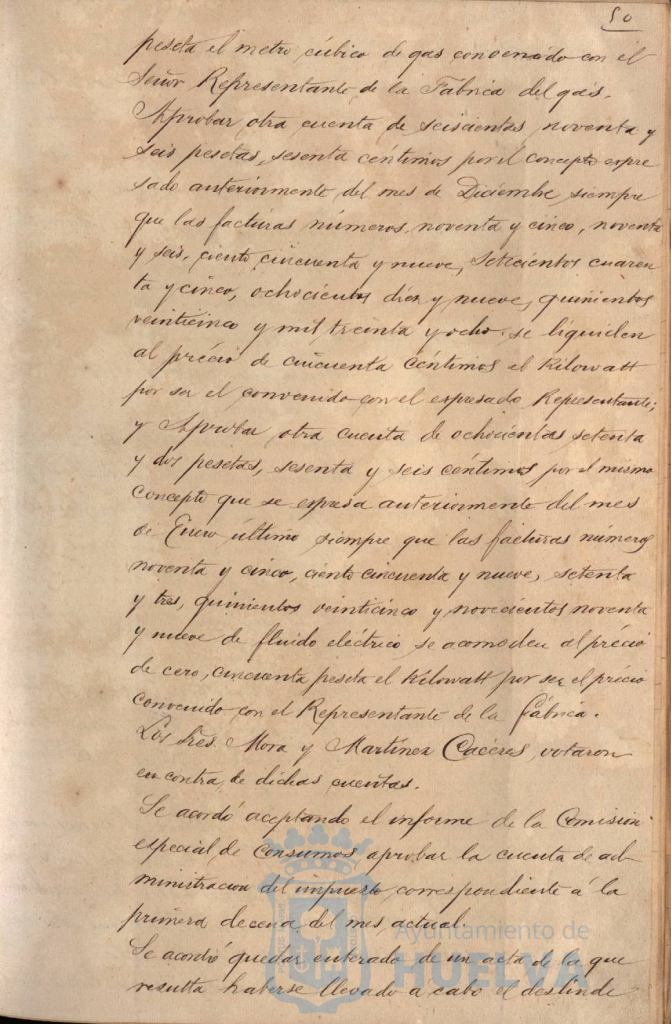 50
peseta el metro cúbico de gas convenido con el
Señor Representante de la Fábrica del gas.
Aprobar otra cuenta de seiscientas noventa y
seis pesetas, sesenta céntimos por el concepto expre
sado anteriormente del mes de Diciembre siempre
que las facturas números, noventa y cinco, noventa
y seis, ciento cincuenta y nueve, setecientos cuaren
ta y cinco, ochocientos diez y nueve, quinientos
veinticinco y mil treinta y ocho se liquiden
al précio de cincuenta céntimos el Kilowatt
por ser el convenido con el espresado Representante;
y Aprobar otra cuenta de ochocientas setenta
y dos pesetas, sesenta y seis céntimos por el mismo
concepto que se espresa anteriormente del mes
de Enero último siempre que las facturas números
noventa y cinco, ciento cincuenta y nueve, setenta
y tres, quinientos veinticinco y novecientos noventa
y nueve de fluido eléctrico se acomoden al précio
de cero, cincuenta peseta el Kilowatt por ser el précio
convenido con el Representante de la Fábrica.
Los Sres. Mora y Martínez Caceres, votaron
en contra de dichas cuentas.
Se acordó aceptando el informe de la Comisión
especial de Consumos aprobar la cuenta de ad-
ministracion del impuesto correspondiente á la
primera decena del mes actual.
Se acordó quedar enterado de un acta de la que
resulta haberse llevado a cabo el deslinde
Ayuntamiento de
HUELVA